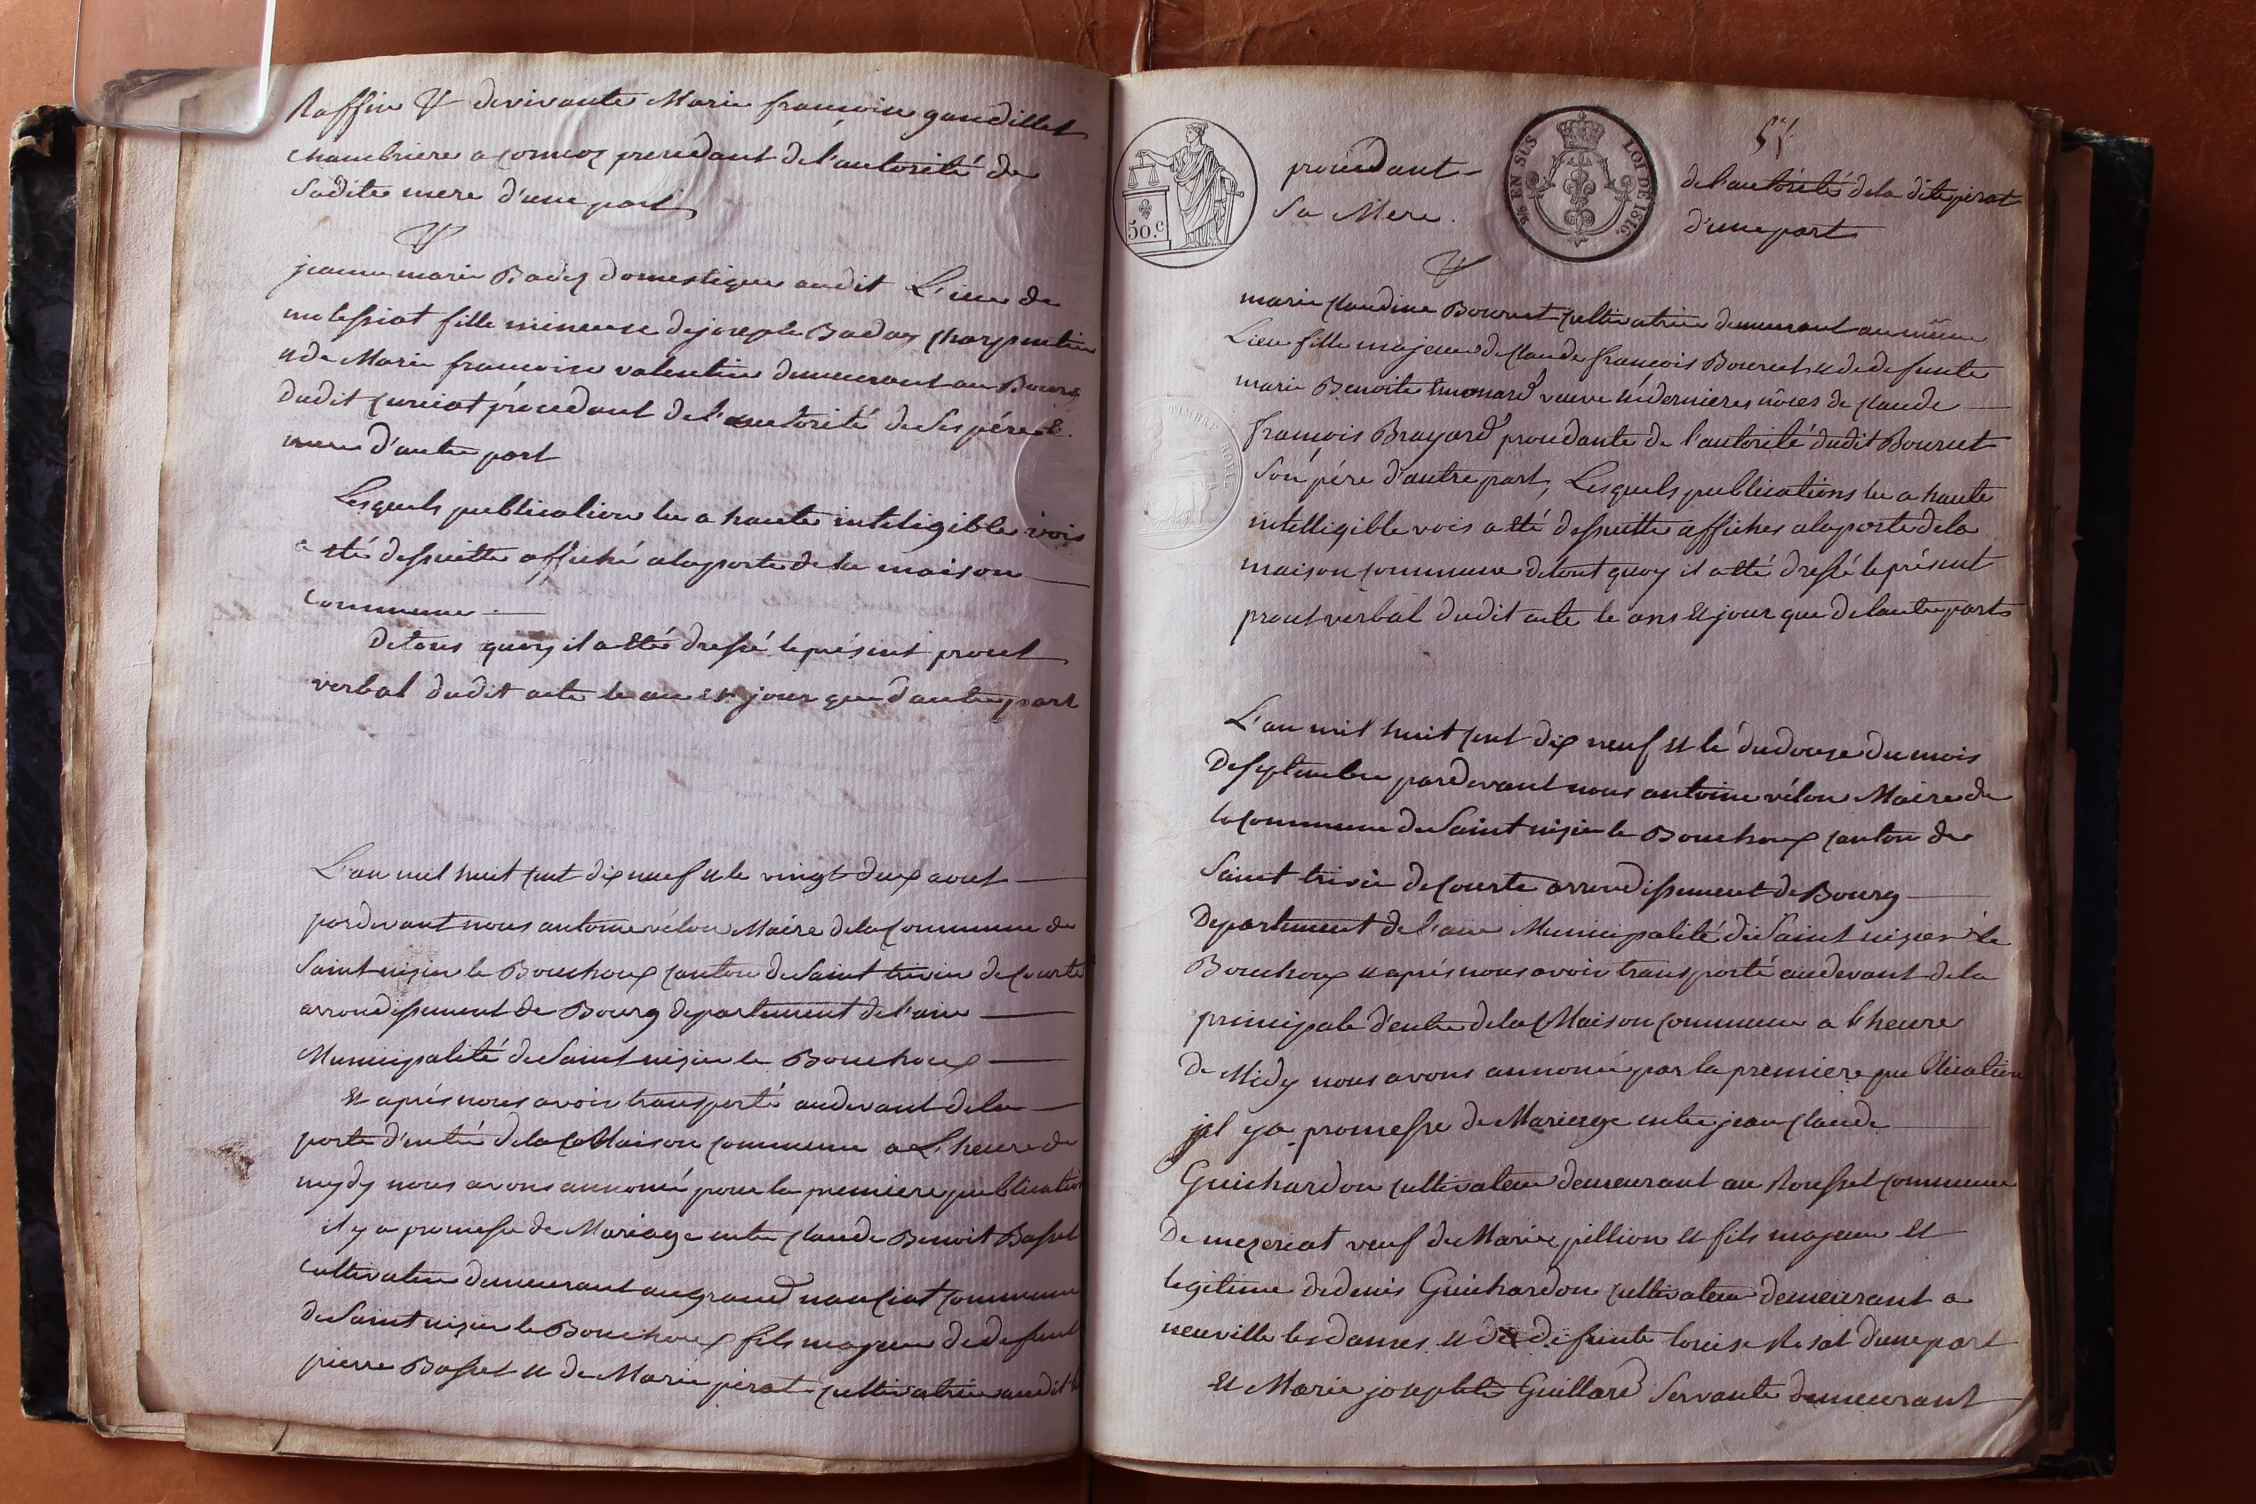 Raffin & de vivante Marie françoise gaudillet
chambriere a cormoz procedant de l'autorité de
Sadite mere d'une part
&
jeanne marie Baday domestique audit Lieu de
fille mineure de joseph Baday charpentier
& de Marie francoise valentin demeurant au Bourg
dudit curciat procedant de l'autorité de Ses pére &
mere d'autre part
Lesquels publication lu a haute inteligible voix
a eté dessuitte affiché a la porte de la maison
commune
De tous quoy il a eté dressé le présent procet
verbal dudit acte le an et jour que d'autre part
L'an mil huit cent dix neuf & le vingt deux aout
pardevant nous antoine vélon Maire de la Commune de
Saint nizier le Bouchoux canton de Saint trivier de Courte
arrondissement de Bourg departement de l'ain
Municipalité de Saint nizier le Bouchoux
Et aprés nous avoir transporté audevant de la
porte d'entré de la Maison commune a L'heure de
mydy nous avons annoncé pour la premiere publication
il y a promesse de Mariage entre Claude Benoit Basset
cultivateur demeurant au grand nanciat commune
de Saint nizier le Bouchoux fils majeur de defunt
pierre Basset & de Marie perat cultivatrice audit
57
procedant
de l'autorité de la dite perat
Sa Mere
d'une part
50.c
9/6 EN SUS
LOI DE 1816.
&
marie claudine Bourcet cultivatrice demeurant au même
Lieu fille majeure de Claude françois Bourcet & de defunte
marie Benoite veuve en dernieres nôces de Claude
françois Brayard procedante de l'autorité dudit Bourcet
Son pére d'autre part, Lesquels publications lu a haute
intelligible vois a eté dessuitte affiches a la porte de la
maison commune de tout quoy il a eté dressé le présent
procet verbal dudit acte le ans & jour que de l'autre parts
L'an mil huit cent dix neuf & le du douze du mois
De septembre pardevant nous antoine vélon Maire de
la Commune de Saint nizier le Bouchoux canton de
Saint trivier de Courte arrondissement de Bourg
Departement de l'ain Municipalité de Saint nizier le
Bouchoux & aprés nous avoir transporté audevant de la
principale d'entre de la Maison commune a l'heure
De Midy nous avons annoncé par la premiere publication
jil y a promesse de Mariage entre jean Claude
Guichardon cultivateur demeurant au Rousset commune
De mezeriat veuf de Marie pillion & fils majeur Et
legitime de denis Guichardon cultivateur demeurant a
neuville les dames & de defunte louise Resat d'une part
Et Marie josephte Guillard Servante demeurant